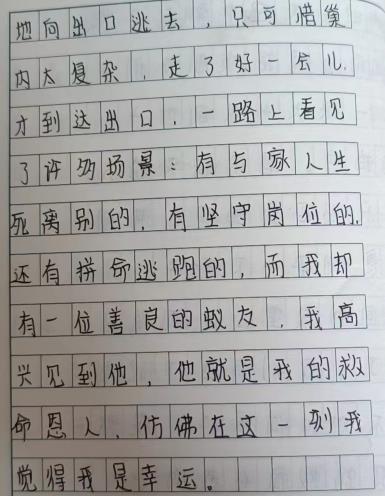 地向出口逃去，只可惜巢
内太复杂，走了好一会儿，
才到达出口，一路上看见
了许多场景：有与家人生
死离别的，有坚守岗位的，
还有拼命逃跑的，而我却
有一位善良的蚁友，我高
兴见到他，他就是我的救
命恩人，仿佛在这一刻我
觉得我是幸运。